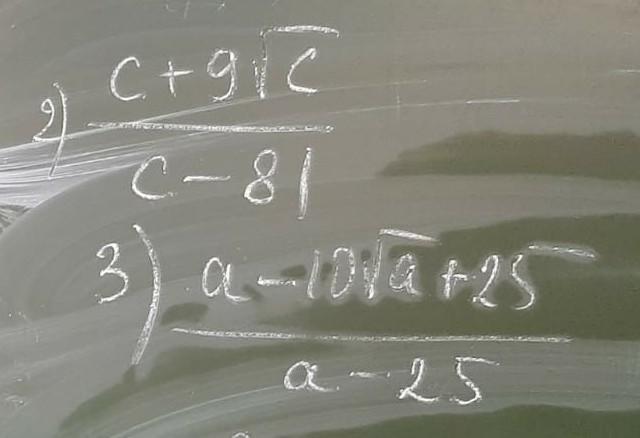 2) (c + 9√c)/(c - 81)
3) (a - 10√a + 25)/(a - 25)